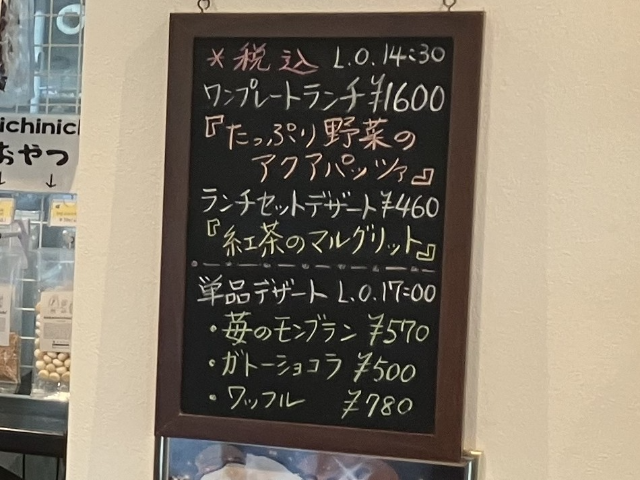 *税込 L.O.14:30
ワンプレートランチ¥1600
『たっぷり野菜の
アクアパッツァ』
ランチセットデザート¥460
『紅茶のマルグリット』
単品デザート L.O.17:00
・苺のモンブラン ¥570
・ガトーショコラ ¥500
・ワッフル ¥780
ichinich
おやつ
↓ ↓